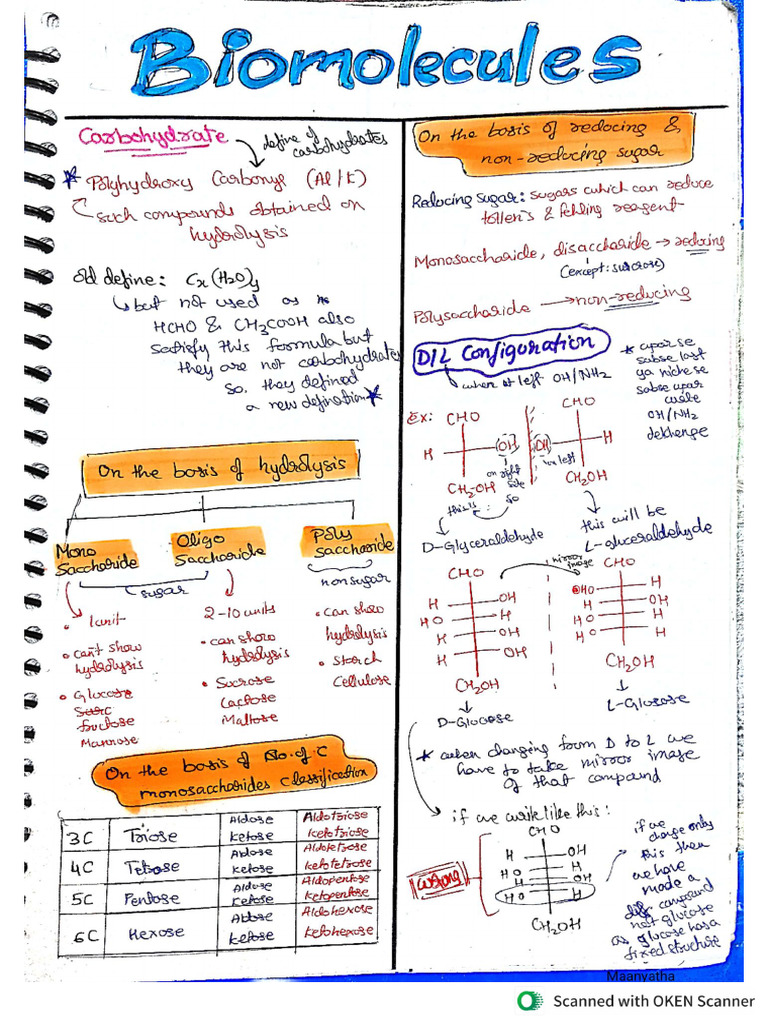 Biomolecules
Carbohydrate
define of
carbohydrates
* Polyhydroxy Carbonyl (Al/K)
such compounds obtained on
hydrolysis
old define: Cx(H2O)y
but not used as
HCHO & CH3COOH also
satisfy this formula but
they are not carbohydrates
so, they defined
a new defination *
On the basis of hydrolysis
Mono
Saccharide
Oligo
Saccharide
Poly
saccharide
sugar
nonsugar
• 1unit
• can't show
hydrolysis
• Glucose
fructose
Mannose
2-10 units
• can show
hydrolysis
• Sucrose
Lactose
Maltose
• can show
hydrolysis
• Starch
Cellulose
On the basis of No. of C
monosaccharides classification
3C Triose Aldose Aldotriose
Ketose Ketotriose
4C Tetrose Aldose Aldotetrose
Ketose Ketotetrose
5C Pentose Aldose Aldopentose
Ketose Ketopentose
6C Hexose Aldose Aldohexose
Ketose Ketohexose
On the basis of reducing &
non-reducing sugar
Reducing sugar: sugars which can reduce
tollen's & fehling reagent
Monosaccharide, disaccharide → reducing
(except: sucrose)
Polysaccharide → non-reducing
D/L Configuration
when at left OH/NH2
* upar se
sabse last
ya niche se
sabse upar
wale
OH/NH2
dekhenge
Ex:
CHO
H OH
CH2OH
on right
side
so
this is
D-Glyceraldehyde
CHO
OH H
CH2OH
on left
this will be
L-glyceraldehyde
mirror
image
CHO
H OH
HO H
H OH
H OH
CH2OH
D-Glucose
CHO
HO H
H OH
HO H
HO H
CH2OH
L-Glucose
* when changing form D to L we
have to take mirror image
of that compound
if we write like this:
wrong
CHO
H OH
HO H
H OH
HO H
CH2OH
if we
change only
this then
we have
made a
diff compound
not glucose
as glucose has a
fixed structure
Maanyatha
Scanned with OKEN Scanner